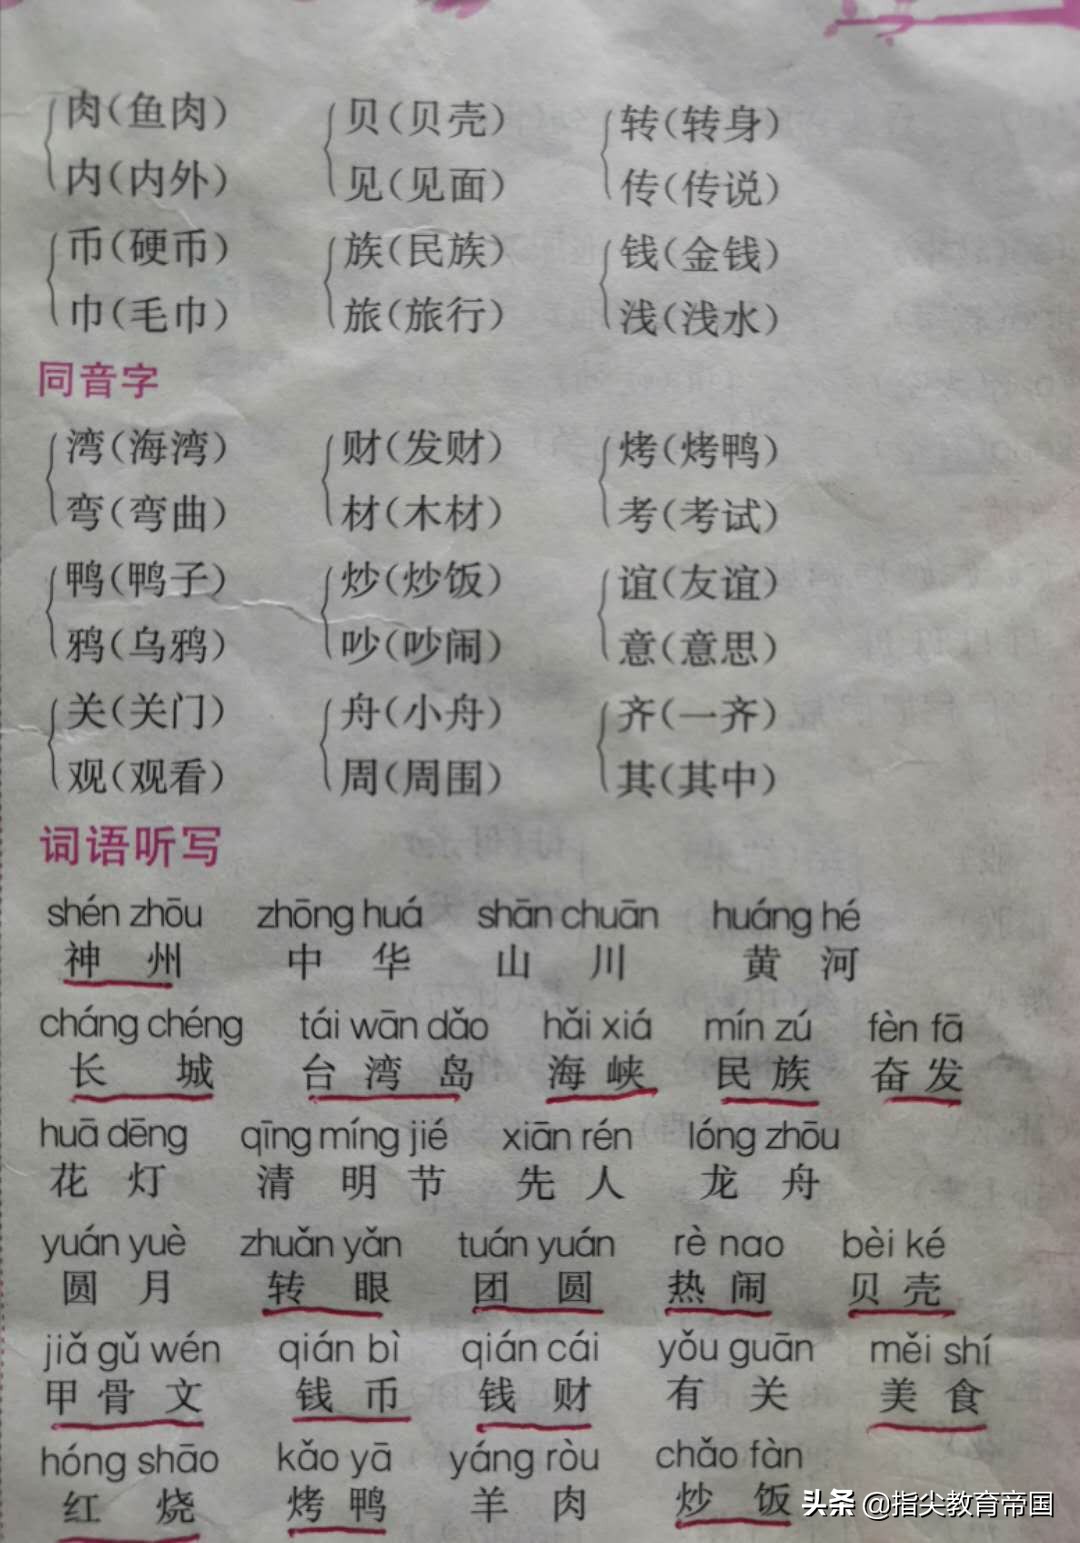 肉(鱼肉) 贝(贝壳) 转(转身)
内(内外) 见(见面) 传(传说)
币(硬币) 族(民族) 钱(金钱)
巾(毛巾) 旅(旅行) 浅(浅水)
同音字
湾(海湾) 财(发财) 烤(烤鸭)
弯(弯曲) 材(木材) 考(考试)
鸭(鸭子) 炒(炒饭) 谊(友谊)
鸦(乌鸦) 吵(吵闹) 意(意思)
关(关门) 舟(小舟) 齐(一齐)
观(观看) 周(周围) 其(其中)
词语听写
shén zhōu zhōng huá shān chuān huáng hé
神 州 中 华 山 川 黄 河
cháng chéng tái wān dǎo hǎi xiá mín zú fèn fā
长 城 台 湾 岛 海 峡 民 族 奋 发
huā dēng qīng míng jié xiān rén lóng zhōu
花 灯 清 明 节 先 人 龙 舟
yuán yuè zhuǎn yǎn tuán yuán rè nao bèi ké
圆 月 转 眼 团 圆 热 闹 贝 壳
jiǎ gǔ wén qián bì qián cái yǒu guān měi shí
甲 骨 文 钱 币 钱 财 有 关 美 食
hóng shāo kǎo yā yáng ròu chǎo fàn
红 烧 烤 鸭 羊 肉 炒 饭
头条 @指尖教育帝国